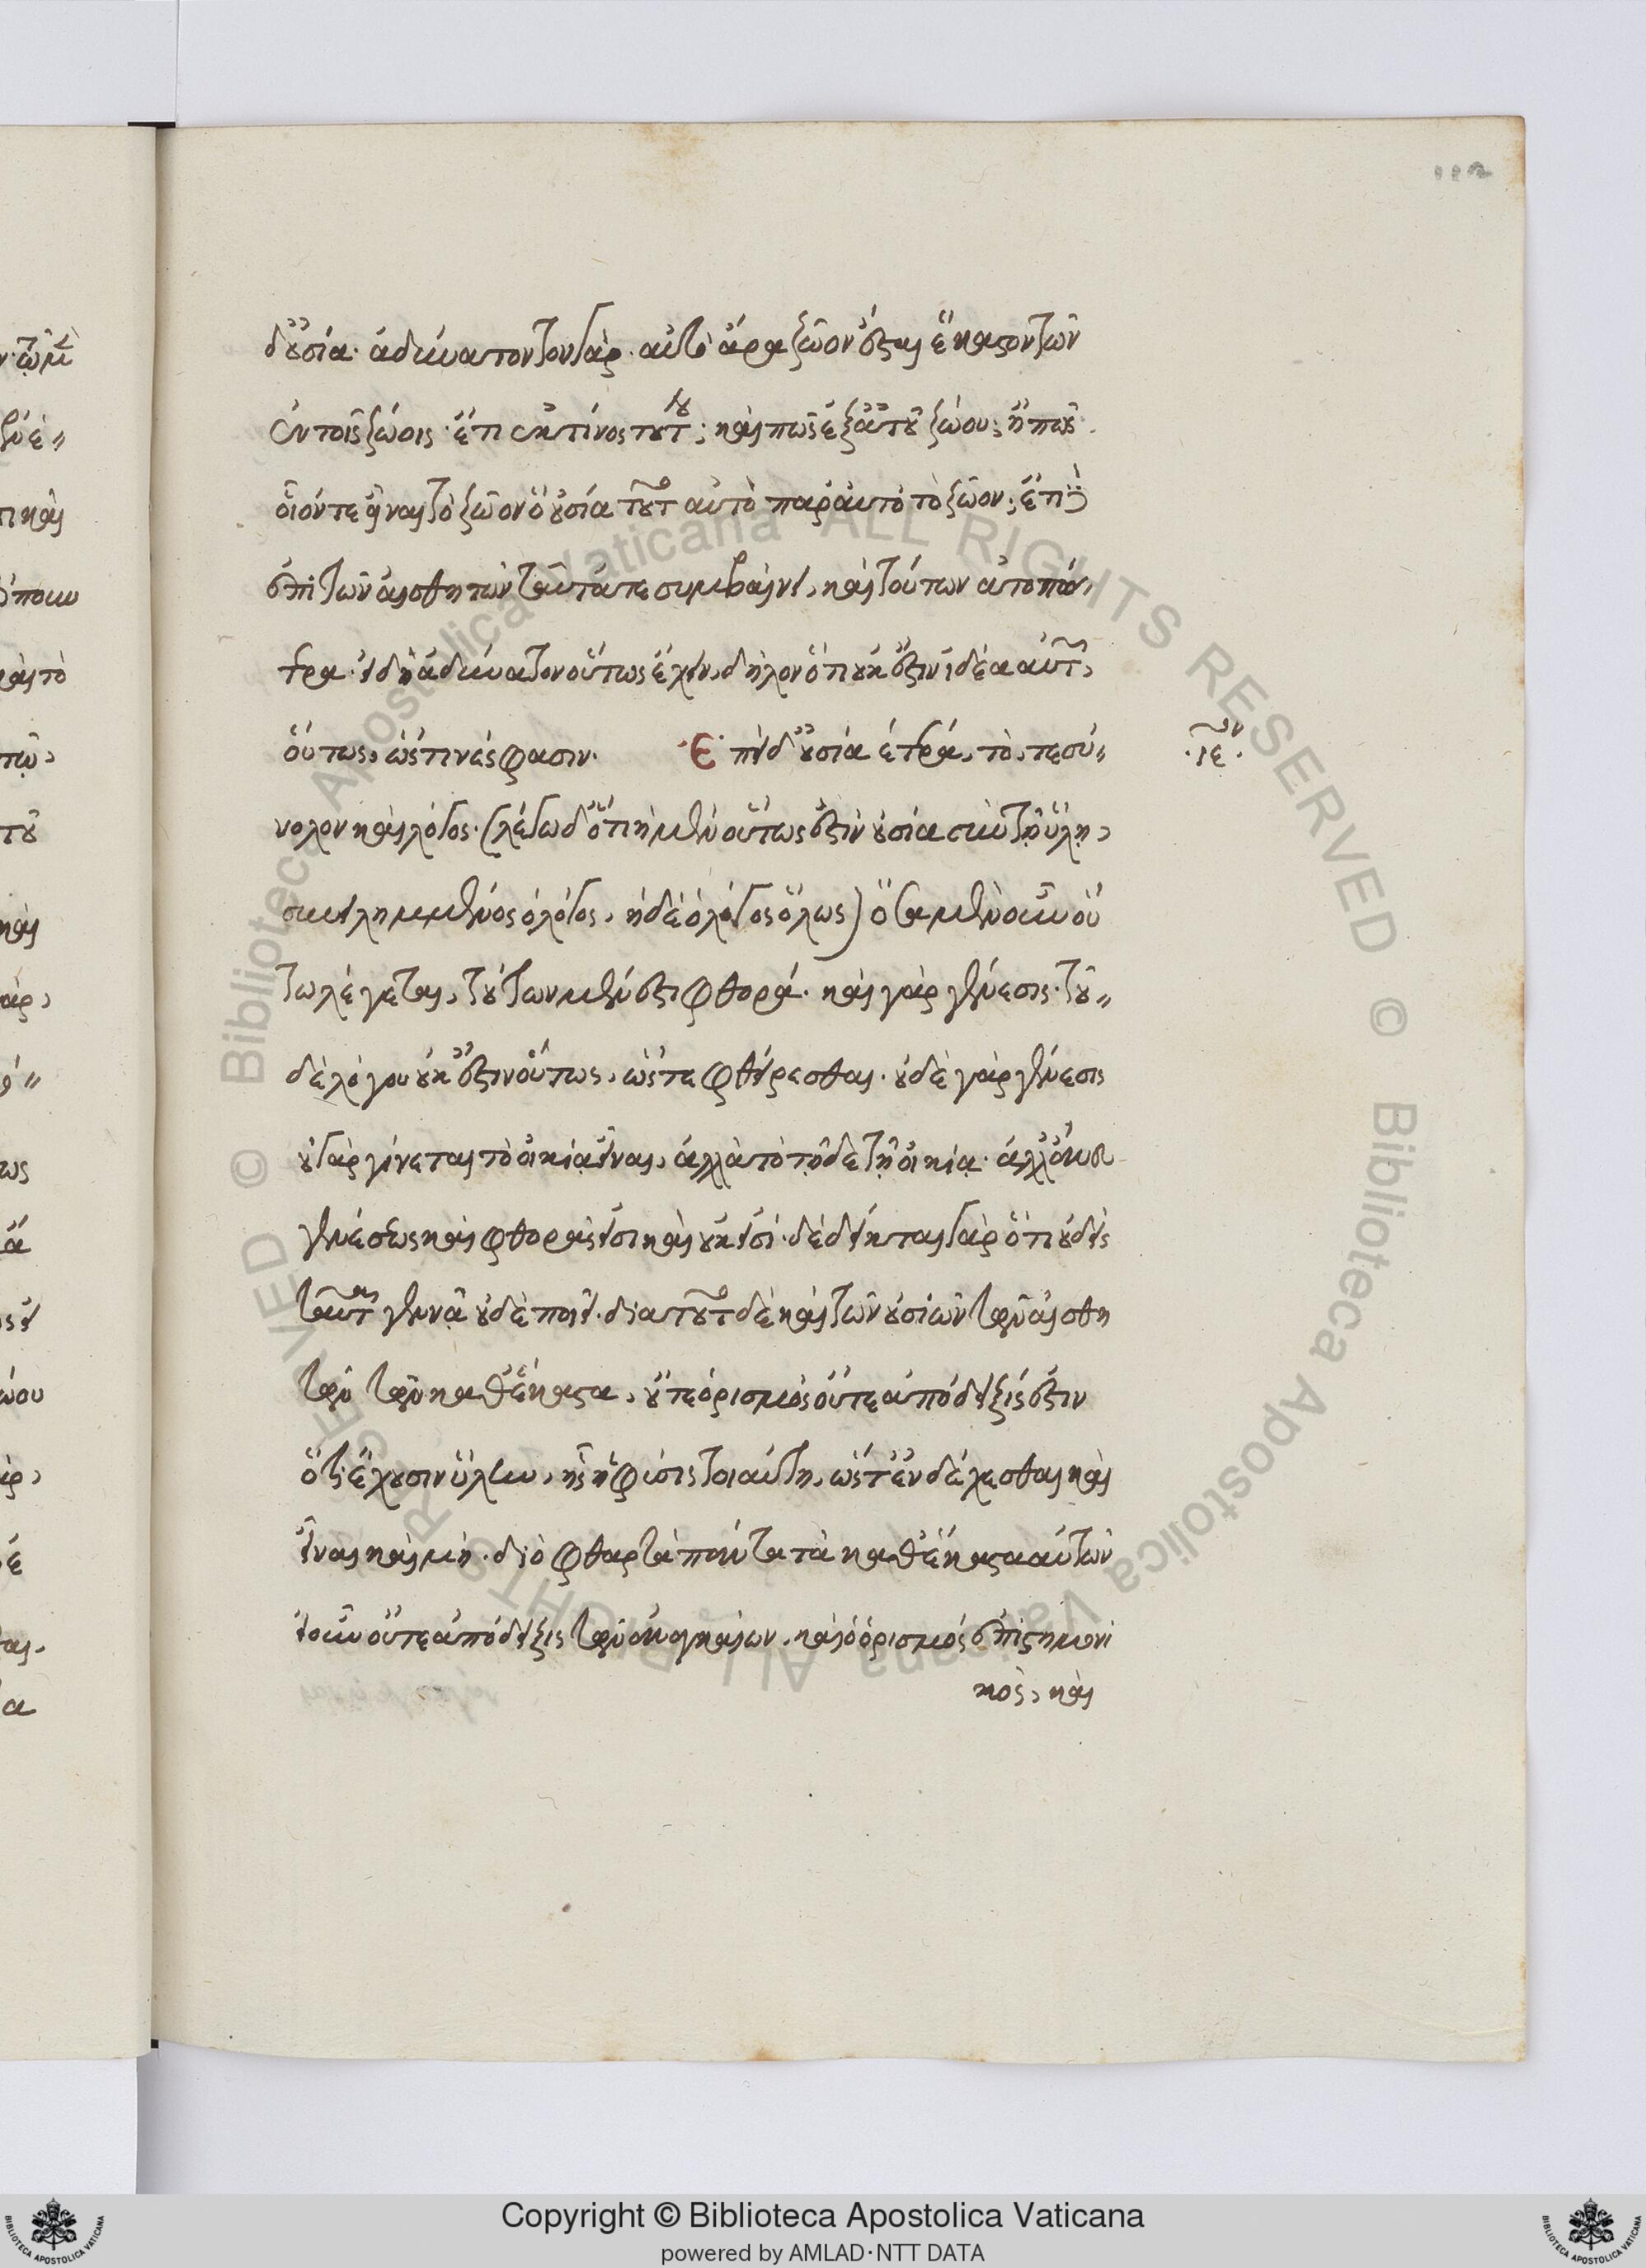 δ' οὐσία· ἀδύνατον τον γάρ· αὐτὸ ἄρα ζῶον ἔσται ἕκαστον τῶν
ἐν τοῖς ζώοις· ἔτι ἐκ τίνος τοῦτο; καὶ πῶς ἐξ αὐτοῦ ζώου; ἢ πῶς
οἷόν τε εἶναι τὸ ζῶον ὃ οὐσία τοῦτο αὐτὸ παρ' αὐτὸ τὸ ζῶον; ἔτι δ'
ἐπὶ τῶν αἰσθητῶν ταῦτά τε συμβαίνει, καὶ τούτων ἀτοπώ-
τερα· εἰ δὴ ἀδύνατον οὕτως ἔχειν, δῆλον ὅτι οὐκ ἔστιν ἰδέα αὐτῶν,
οὕτως, ὥς τινές φασιν· Ἐπεὶ δ' οὐσία ἑτέρα, τό, τε σύ-
·ιεον·
νολον καὶ λόγος· (λέγω δ' ὅτι ἡ μὲν οὕτως ἐστὶν οὐσία σὺν τῇ ὕλῃ,
συνειλημμένος ὁ λόγος, ἡ δὲ ὁ λόγος ὅλως) ὅσα μὲν οὖν οὕ
τω λέγεται, τούτων μὲν ἔστι φθορά· καὶ γὰρ γένεσις· τοῦ-
δὲ λόγου οὐκ ἔστιν οὕτως, ὥστε φθείρεσθαι· οὐδὲ γὰρ γένεσις
οὐ γὰρ γίνεται τὸ οἰκίᾳ εἶναι, ἀλλὰ τὸ τῇδε τῇ οἰκίᾳ· ἀλλ' ἄνευ
γενέσεως καὶ φθορᾶς εἰσι καὶ οὐκ εἰσί· δέδεικται γὰρ ὅτι οὐδεὶς
ταῦτα γεννᾷ οὐδὲ ποιεῖ· διὰ τοῦτο δὲ καὶ τῶν οὐσιῶν τῶν αἰσθη
τῶν τῶν καθ' ἕκαστα, οὔτε ὁρισμὸς οὔτε ἀπόδειξίς ἐστιν
ὅτι ἔχουσιν ὕλην, ἧς ἡ φύσις τοιαύτη, ὥστ' ἐνδέχεσθαι καὶ
εἶναι καὶ μή· διὸ φθαρτὰ πάντα τὰ καθ' ἕκαστα αὐτῶν
εἰ οὖν οὔτε ἀπόδειξις τῶν ἀναγκαίων, καὶ ὁ ὁρισμὸς ἐπιστημονι
κός, καὶ
Copyright © Biblioteca Apostolica Vaticana
powered by AMLAD·NTT DATA